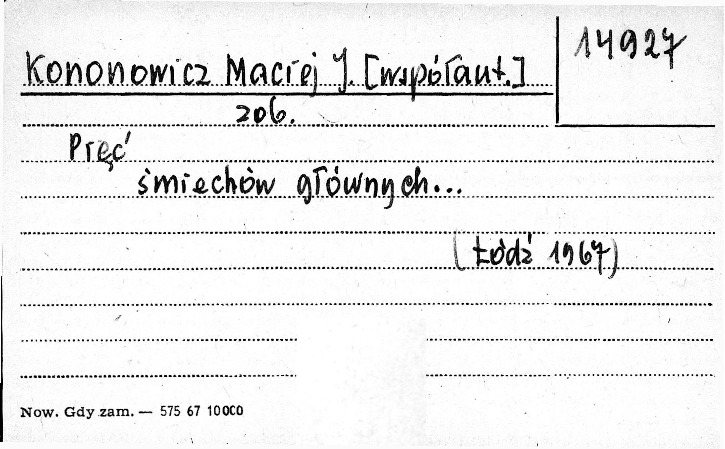 14927
Kononowicz Maciej J. [współaut.]
zob.
Pięć
śmiechów głównych...
(Łódź 1967)
Now. Gdy zam. — 575 67 10000